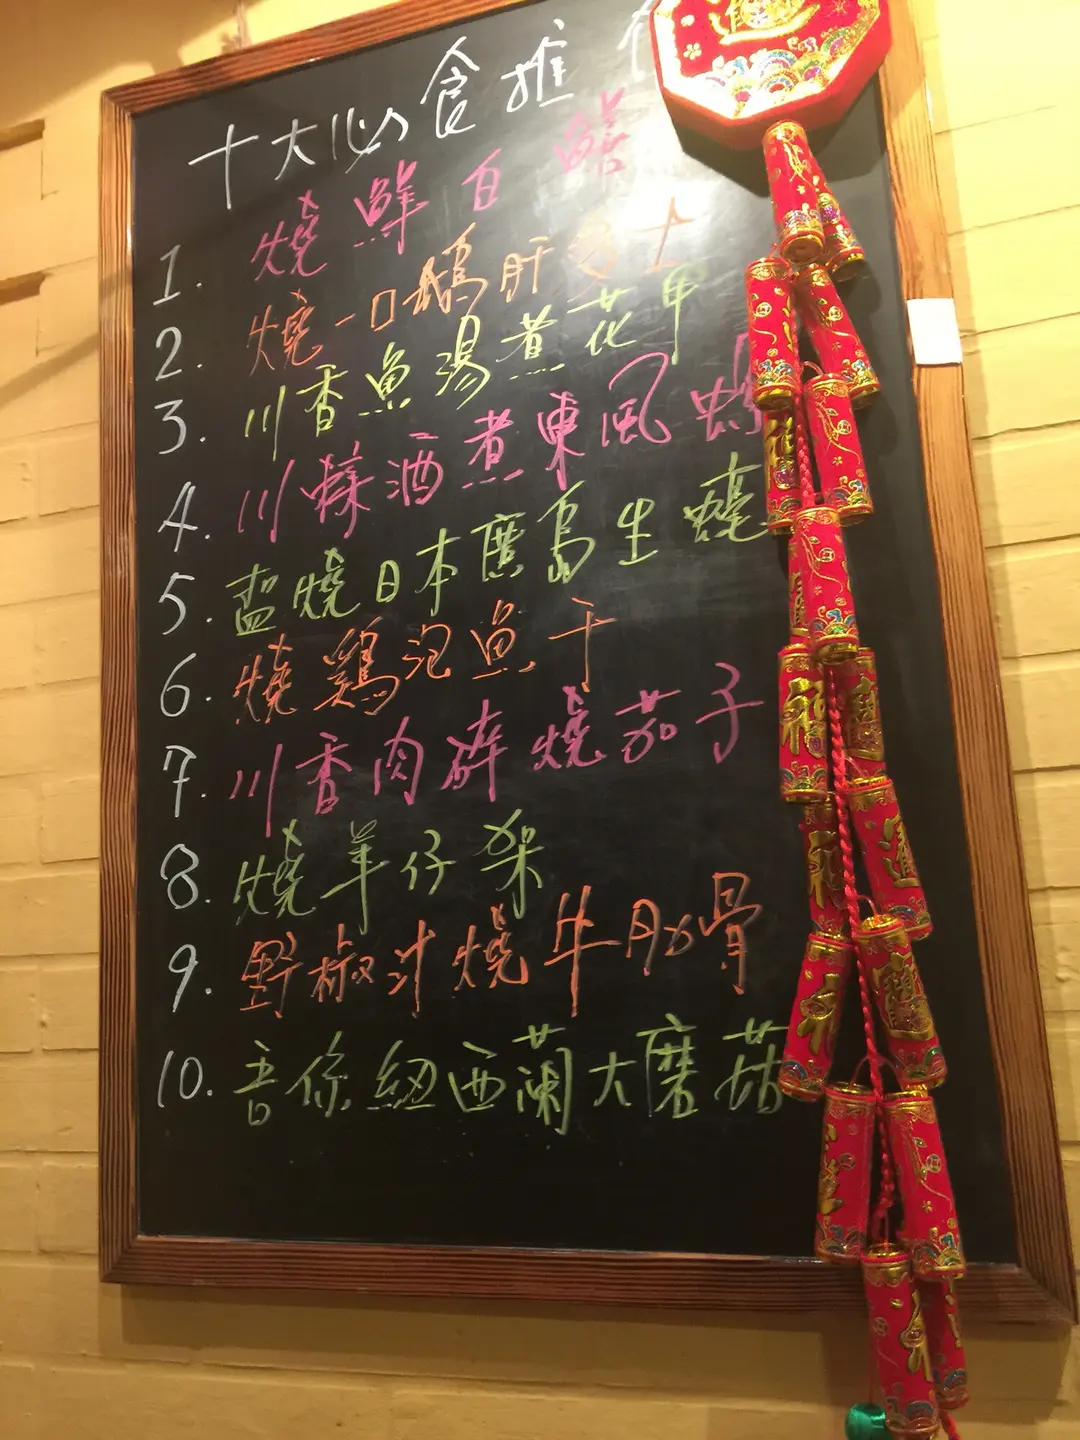 十大必食推
1. 燒鮮白鱔
2. 燒一口鵝肝多士
3. 川香魚湯煮花甲
4. 川辣酒煮東風
5. 盐燒日本廣島生蠔
6. 燒鷄泡魚干
7. 川香肉碎燒茄子
8. 燒羊仔架
9. 野椒汁燒牛肋骨
10. 吾係紐西蘭大磨菇
福